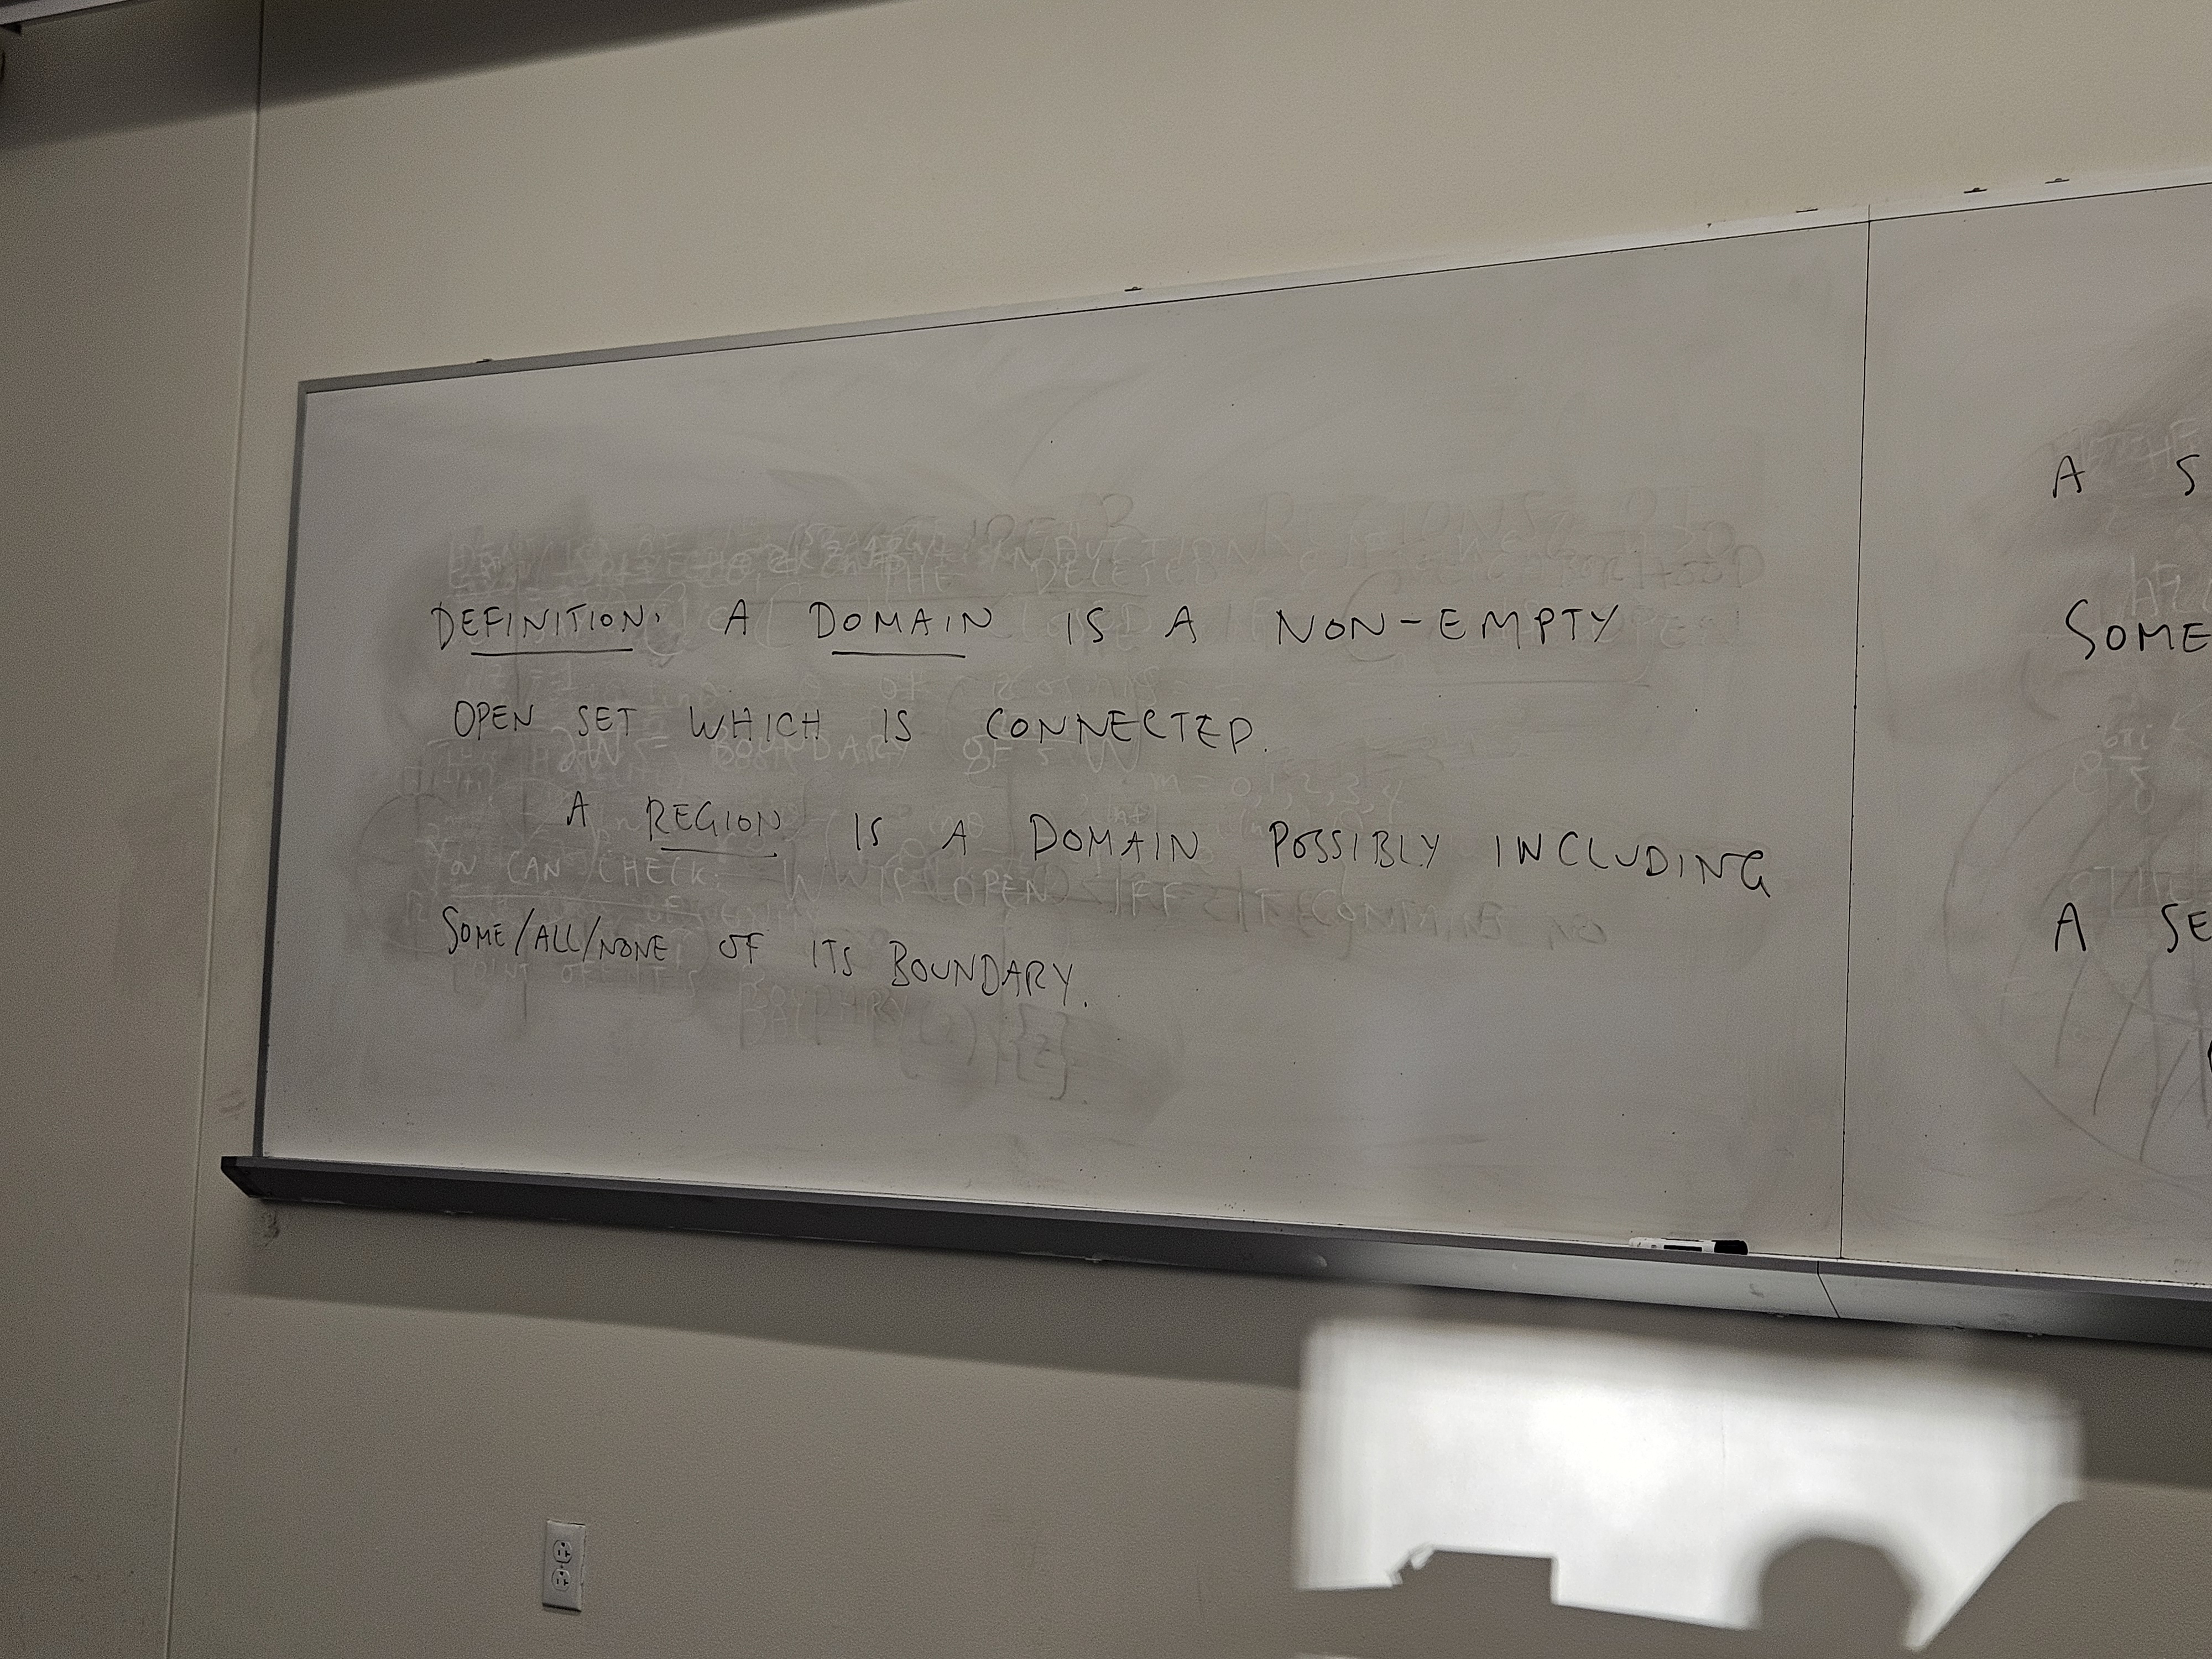 DEFINITION: A DOMAIN IS A NON-EMPTY
OPEN SET WHICH IS CONNECTED.
A REGION IS A DOMAIN POSSIBLY INCLUDING
SOME/ALL/NONE OF ITS BOUNDARY.
A S
SOME
A SE